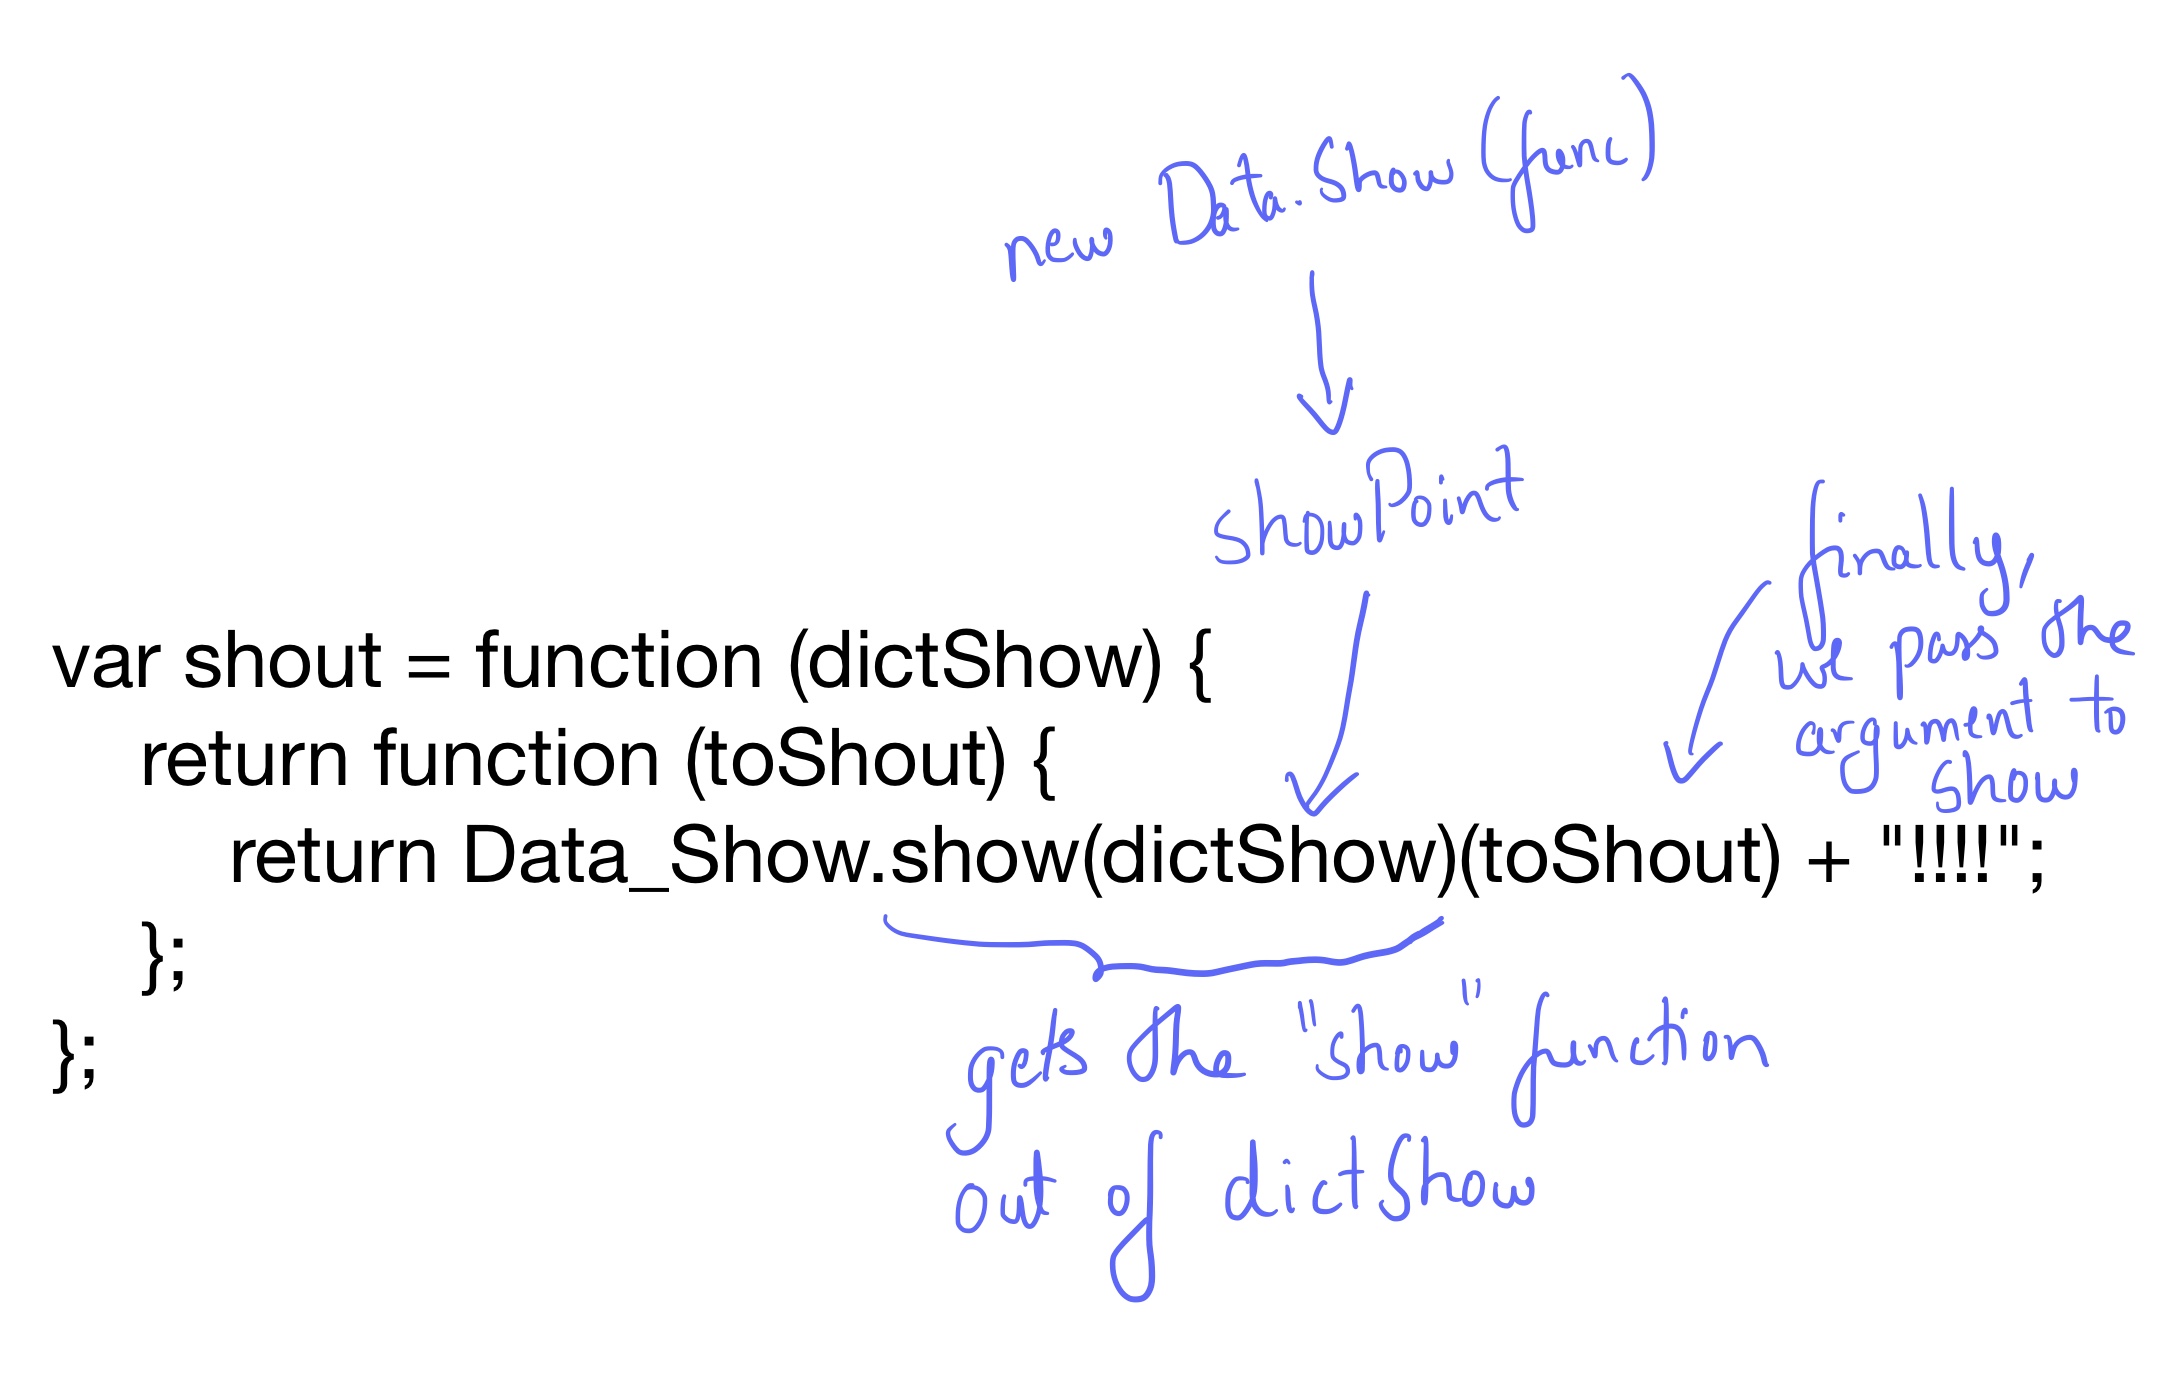 new Data.Show (func)
showPoint
finally,
we pass the
argument to
show
var shout = function (dictShow) {
return function (toShout) {
return Data_Show.show(dictShow)(toShout) + "!!!!";
};
};
gets the "show" function
out of dictShow